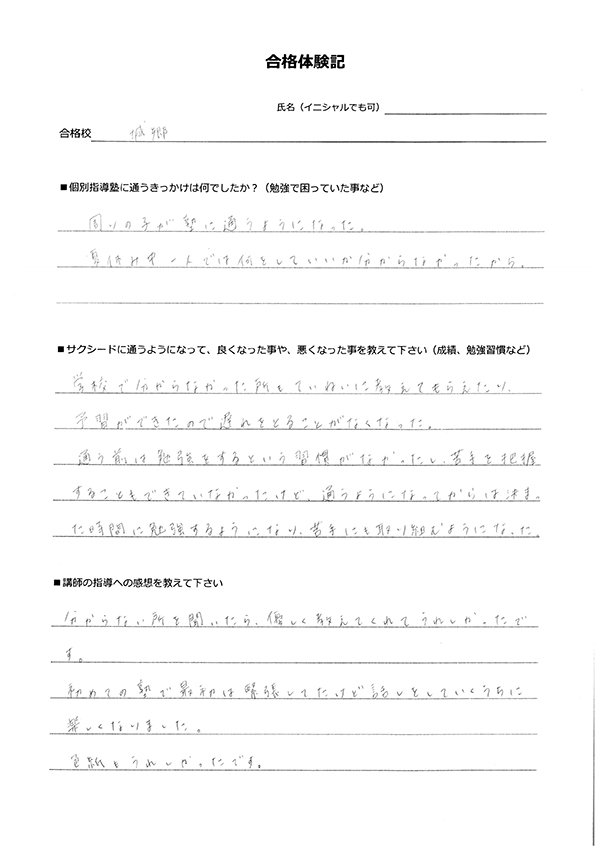 合格体験記
氏名（イニシャルでも可）
合格校 城郷
■個別指導塾に通うきっかけは何でしたか？（勉強で困っていた事など）
周りの子が塾に通うようになった。
夏休み中一人では何をしていいか分からなかったから。
■サクシードに通うようになって、良くなった事や、悪くなった事を教えて下さい（成績、勉強習慣など）
学校で分からなかった所もていねいに教えてもらえたり、
予習ができたので遅れをとることがなくなった。
通う前は勉強をするという習慣がなかったし、苦手を把握
することもできていなかったけど、通うようになってからは決まっ
た時間に勉強するようになり、苦手にも取り組むようになった。
■講師の指導への感想を教えて下さい
分からない所を聞いたら、優しく教えてくれてうれしかったで
す。
初めての塾で最初は緊張してたけど話しをしていくうちに
楽しくなりました。
色紙もうれしかったです。